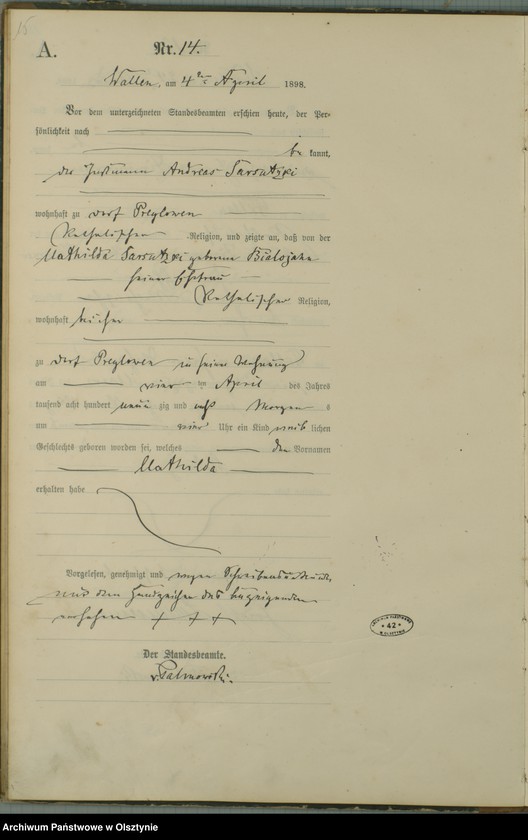 15
A.
Nr. 14.
Wallen, am 4ten April 1898.
Vor dem unterzeichneten Standesbeamten erschien heute, der Per-
sönlichkeit nach
be kannt,
der Instmann Andreas
wohnhaft zu Dorf Preylowen
Katholischer Religion, und zeigte an, daß von der
Mathilda geborene Bialojahn
seiner Ehefrau
Katholischer Religion,
wohnhaft bei ihm
zu Dorf Preylowen in seiner Wohnung
am vier ten April des Jahres
tausend acht hundert neun zig und acht Morgen s
um vier Uhr ein Kind weib lichen
Geschlechts geboren worden sei, welches den Vornamen
Mathilda
erhalten habe
Vorgelesen, genehmigt und wegen
mit dem Handzeichen des
versehen + + +
Der Standesbeamte.
v. Palmowski.
ARCHIWUM PAŃSTWOWE
* 42 *
W OLSZTYNIE
Archiwum Państwowe w Olsztynie